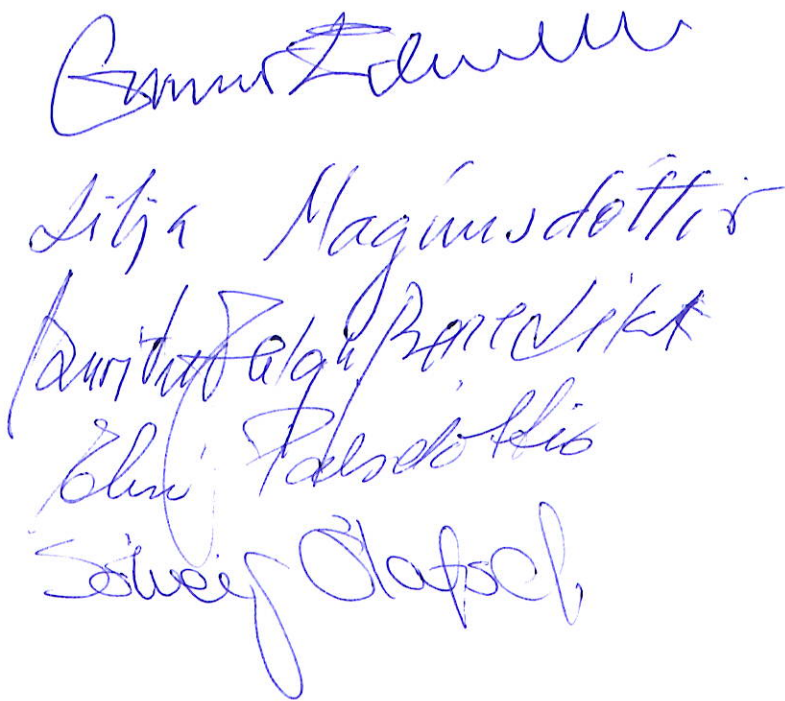 Gunnar
Lilja Magnúsdóttir
Þuríður Helga Benedikt
Elín Pálsdóttir
Sólveig Ólafsd.